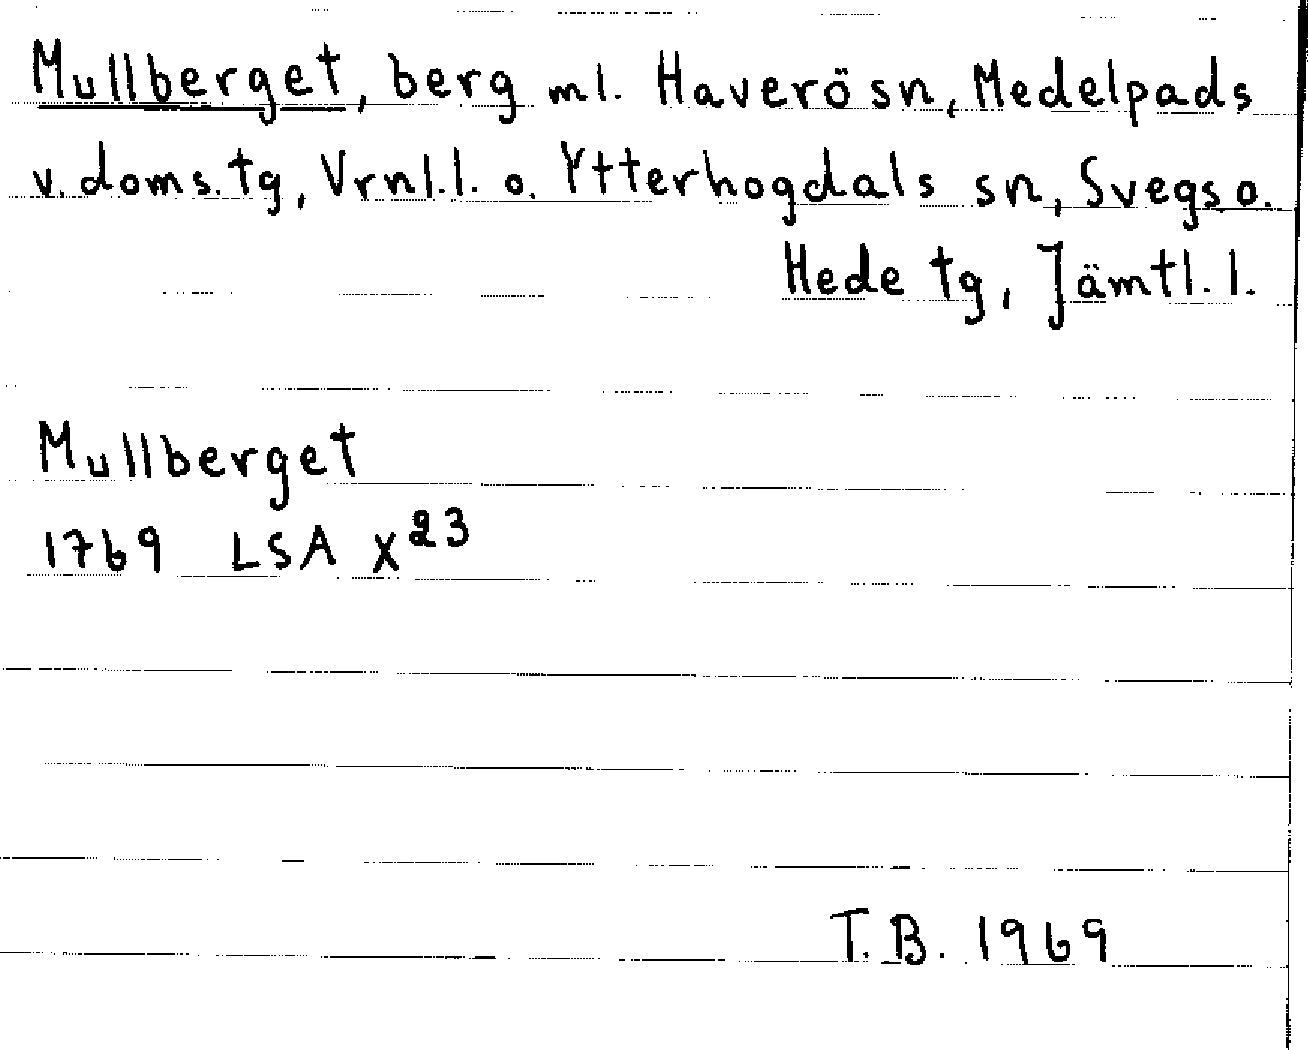 Mullberget, berg ml. Haverö sn, Medelpads
v. doms. tg, Vrnl. l. o. Ytterhogdals sn, Svegs o.
Hede tg, Jämtl. l.
Mullberget
1769 LSA X²³
T.B. 1969